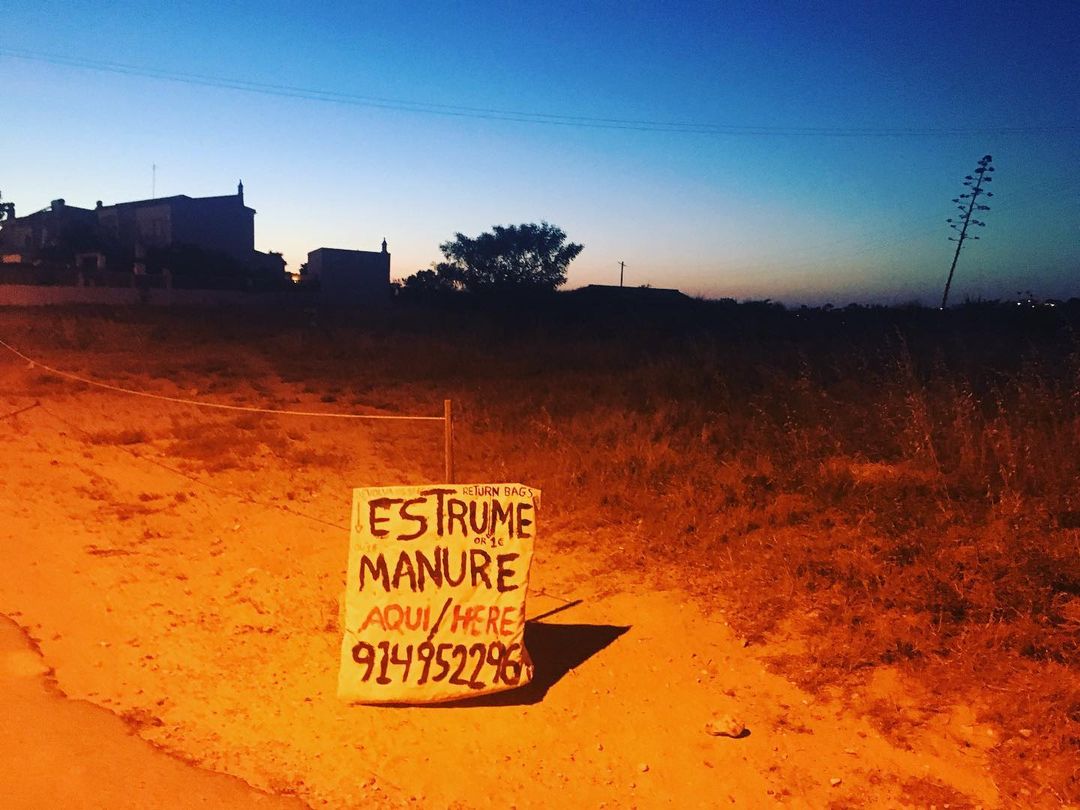 RETURN BAGS
ESTRUME
OR 1€
MANURE
AQUI/HERE
914952296